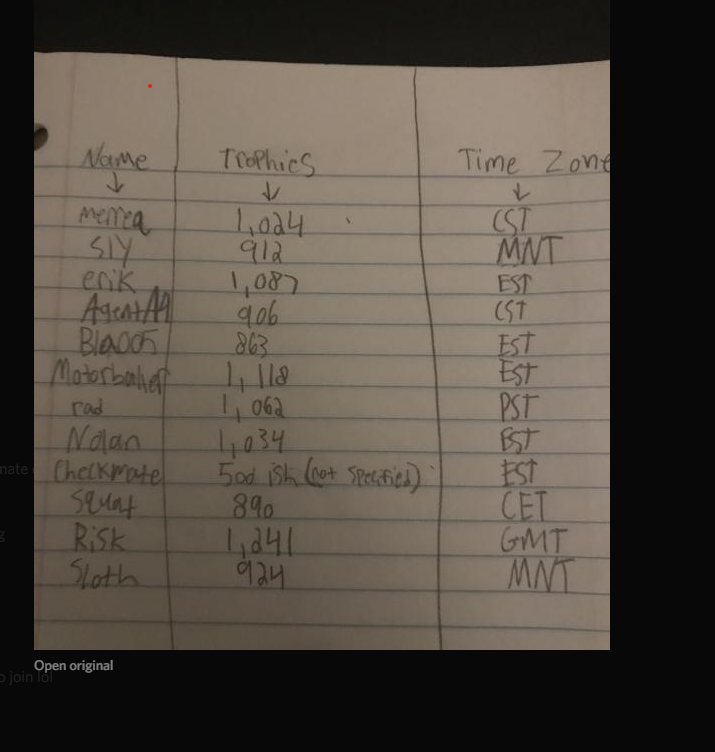 Name Trophies Time Zone
↓ ↓ ↓
merrea 1,024 CST
SlY 912 MNT
erik 1,087 EST
AgentA9 906 CST
863 EST
1,118 EST
rad 1,062 PST
Nolan 1,034 EST
Checkmate 500 ish (not specified) EST
Squat 890 CET
Risk 1,241 GMT
Sloth 924 MNT
Open original
o join lol